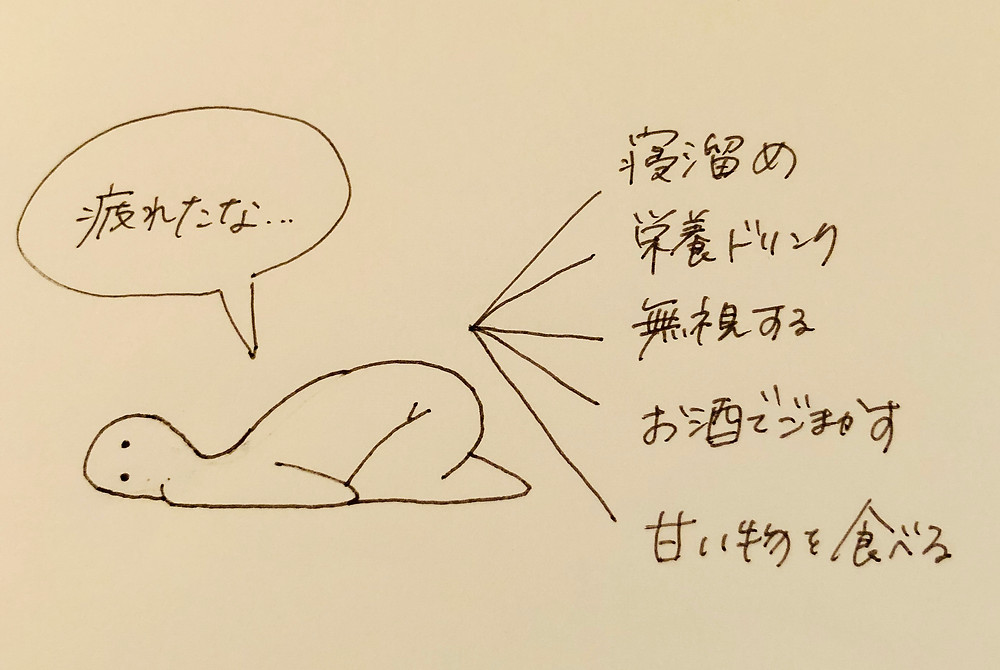 疲れたな...
寝溜め
栄養ドリンク
無視する
お酒でごまかす
甘い物を食べる